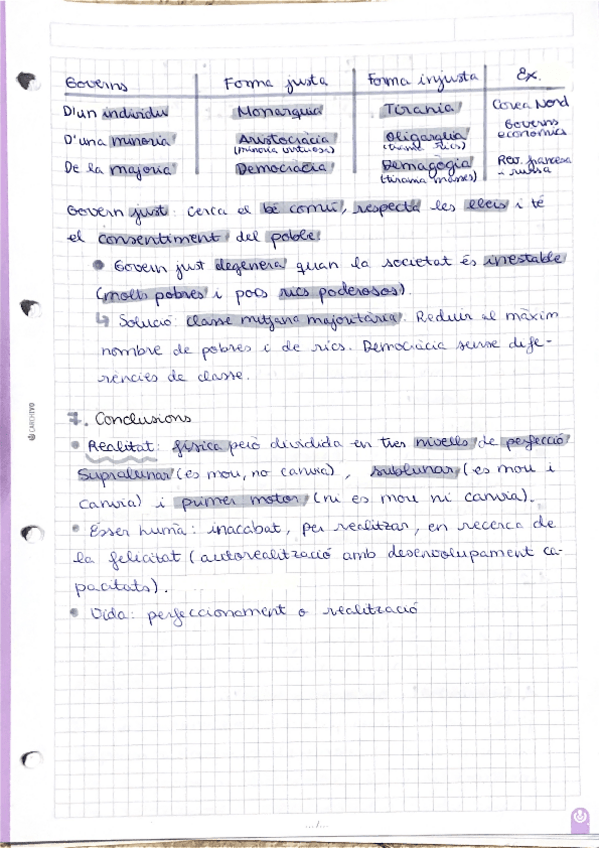 Governs | Forma justa | Forma injusta | Ex.
D'un individu | Monarquia | Tirania | Corea Nord
D'una minoria | Aristocràcia (minoria virtuosa) | Oligarquia (rics) | Governs econòmics
De la majoria | Democràcia | Demagògia (tirania masses) | Rev. francesa - russa
Govern just: cerca el bé comú, respecta les lleis i té
el consentiment del poble
• Govern just degenera quan la societat és inestable
(molts pobres i pocs rics poderosos).
↳ Solució: classe mitjana majoritària. Reduir al màxim
nombre de pobres i de rics. Democràcia sense dife-
rències de classe.
7. Conclusions
• Realitat: física però dividida en tres nivells de perfecció
Supralunar (es mou, no canvia), sublunar (es mou i
canvia) i primer motor (ni es mou ni canvia).
• Ésser humà: inacabat, per realitzar, en recerca de
la felicitat (autorealització amb desenvolupament ca-
pacitats).
• Vida: perfeccionament o realització
CARCHIVO
.../...